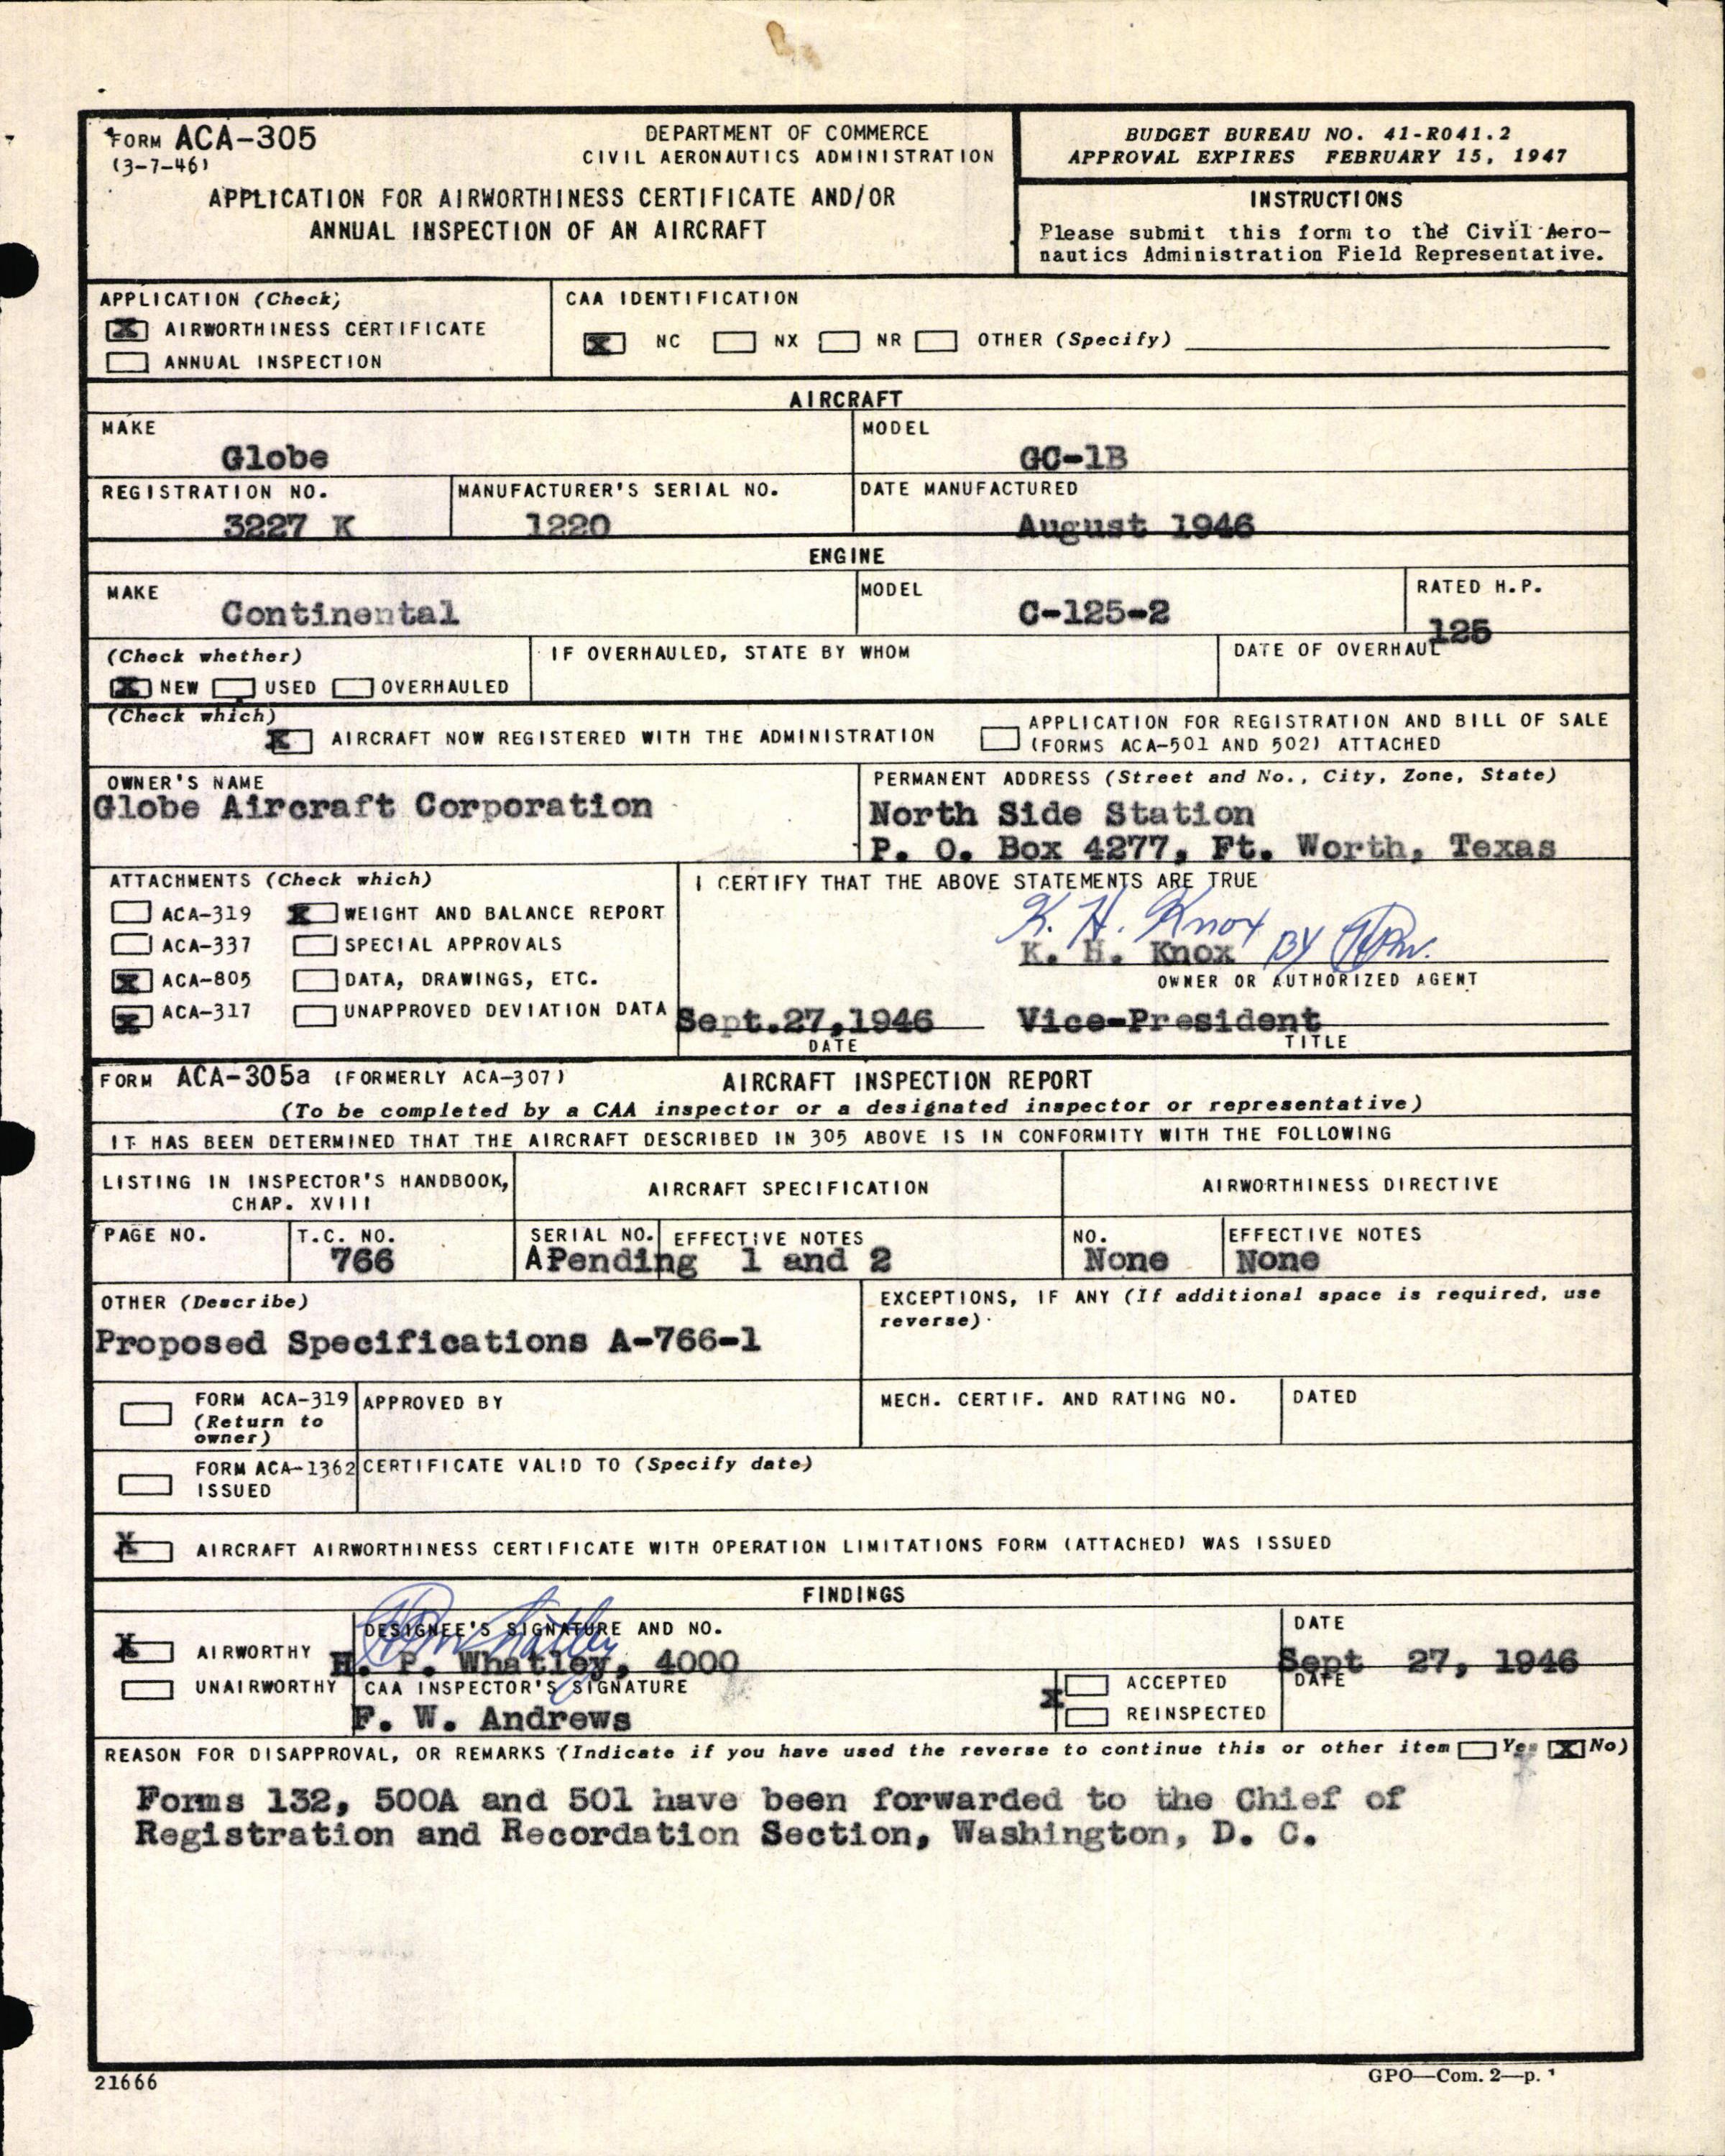 FORM ACA-305
(3-7-46)
DEPARTMENT OF COMMERCE
CIVIL AERONAUTICS ADMINISTRATION
APPLICATION FOR AIRWORTHINESS CERTIFICATE AND/OR
ANNUAL INSPECTION OF AN AIRCRAFT
BUDGET BUREAU NO. 41-R041.2
APPROVAL EXPIRES FEBRUARY 15, 1947
INSTRUCTIONS
Please submit this form to the Civil Aero-
nautics Administration Field Representative.
APPLICATION (Check)
X AIRWORTHINESS CERTIFICATE
ANNUAL INSPECTION
CAA IDENTIFICATION
X NC NX NR OTHER (Specify)
AIRCRAFT
MAKE
Globe
MODEL
GC-1B
REGISTRATION NO.
3227 K
MANUFACTURER'S SERIAL NO.
1220
DATE MANUFACTURED
August 1946
ENGINE
MAKE
Continental
MODEL
C-125-2
RATED H.P.
125
(Check whether)
X NEW USED OVERHAULED
IF OVERHAULED, STATE BY WHOM
DATE OF OVERHAUL
(Check which)
X AIRCRAFT NOW REGISTERED WITH THE ADMINISTRATION
APPLICATION FOR REGISTRATION AND BILL OF SALE
(FORMS ACA-501 AND 502) ATTACHED
OWNER'S NAME
Globe Aircraft Corporation
PERMANENT ADDRESS (Street and No., City, Zone, State)
North Side Station
P. O. Box 4277, Ft. Worth, Texas
ATTACHMENTS (Check which)
ACA-319 X WEIGHT AND BALANCE REPORT
ACA-337 SPECIAL APPROVALS
X ACA-805 DATA, DRAWINGS, ETC.
X ACA-317 UNAPPROVED DEVIATION DATA
I CERTIFY THAT THE ABOVE STATEMENTS ARE TRUE
K. H. Knox BY
K. H. Knox
OWNER OR AUTHORIZED AGENT
Sept.27,1946 Vice-President
DATE TITLE
FORM ACA-305a (FORMERLY ACA-307) AIRCRAFT INSPECTION REPORT
(To be completed by a CAA inspector or a designated inspector or representative)
IT HAS BEEN DETERMINED THAT THE AIRCRAFT DESCRIBED IN 305 ABOVE IS IN CONFORMITY WITH THE FOLLOWING
LISTING IN INSPECTOR'S HANDBOOK,
CHAP. XVIII
AIRCRAFT SPECIFICATION
AIRWORTHINESS DIRECTIVE
PAGE NO.
T.C. NO.
766
SERIAL NO. EFFECTIVE NOTES
APending 1 and 2
NO.
None
EFFECTIVE NOTES
None
OTHER (Describe)
Proposed Specifications A-766-1
EXCEPTIONS, IF ANY (If additional space is required, use
reverse)
FORM ACA-319
(Return to
owner)
APPROVED BY
MECH. CERTIF. AND RATING NO.
DATED
FORM ACA-1362
ISSUED
CERTIFICATE VALID TO (Specify date)
X AIRCRAFT AIRWORTHINESS CERTIFICATE WITH OPERATION LIMITATIONS FORM (ATTACHED) WAS ISSUED
FINDINGS
X AIRWORTHY
UNAIRWORTHY
DESIGNEE'S SIGNATURE AND NO.
H. P. Whatley, 4000
DATE
Sept 27, 1946
CAA INSPECTOR'S SIGNATURE
F. W. Andrews
X
ACCEPTED
REINSPECTED
DATE
REASON FOR DISAPPROVAL, OR REMARKS (Indicate if you have used the reverse to continue this or other item Yes X No)
Forms 132, 500A and 501 have been forwarded to the Chief of
Registration and Recordation Section, Washington, D. C.
21666
GPO—Com. 2—p. 1